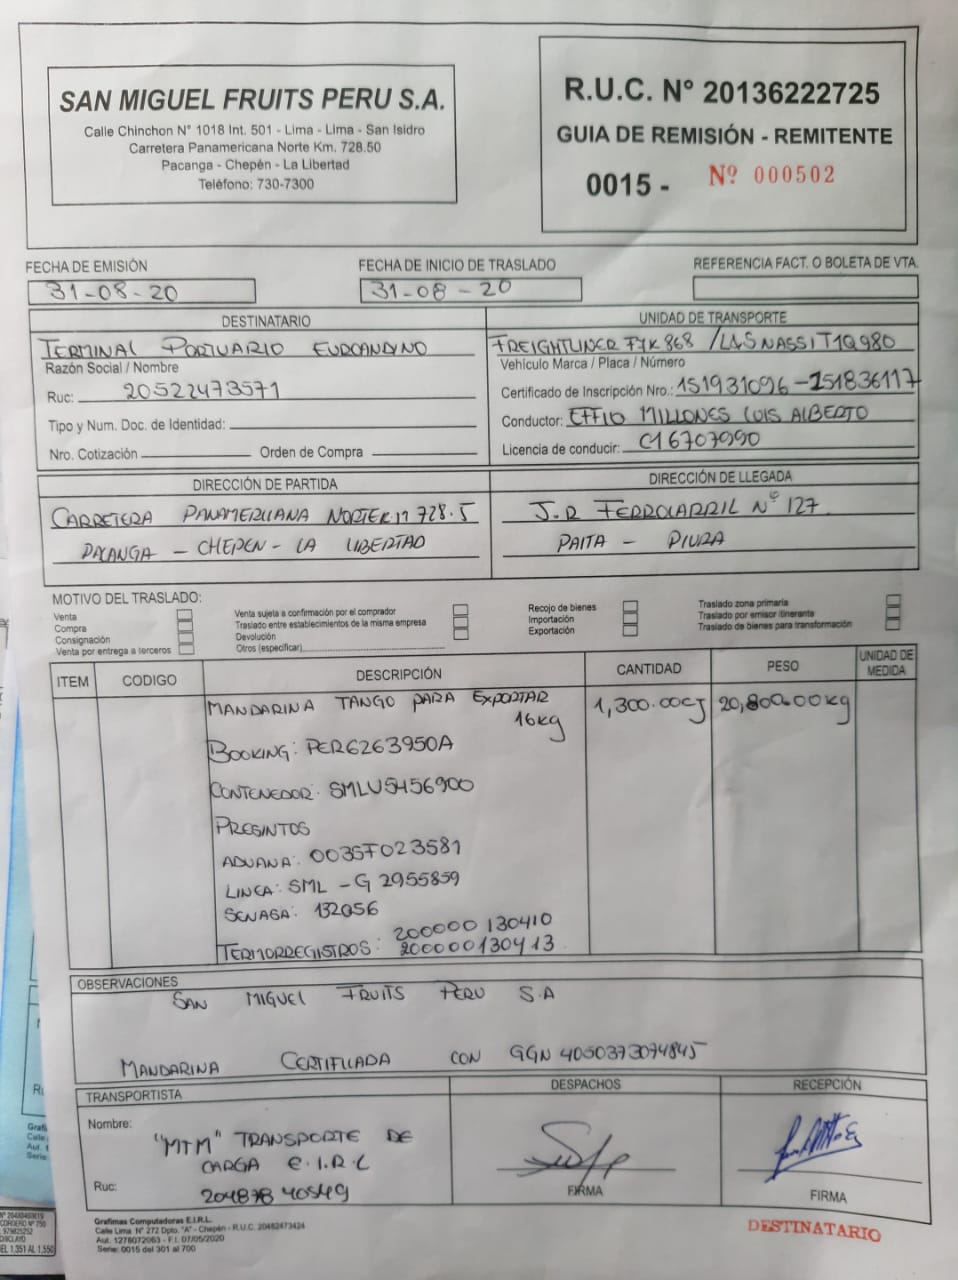 SAN MIGUEL FRUITS PERU S.A.
Calle Chinchon N° 1018 Int. 501 - Lima - Lima - San Isidro
Carretera Panamericana Norte Km. 728.50
Pacanga - Chepén - La Libertad
Teléfono: 730-7300
R.U.C. N° 20136222725
GUIA DE REMISIÓN - REMITENTE
0015 - Nº 000502
FECHA DE EMISIÓN
31-08-20
FECHA DE INICIO DE TRASLADO
31-08-20
REFERENCIA FACT. O BOLETA DE VTA.
DESTINATARIO
TERMINAL PORTUARIO EUROANDINO
Razón Social / Nombre
Ruc: 20522473571
Tipo y Num. Doc. de Identidad:
Nro. Cotización Orden de Compra
UNIDAD DE TRANSPORTE
FREIGHTLINER 868 / T1Q980
Vehículo Marca / Placa / Número
Certificado de Inscripción Nro.: 151931096-151836117
Conductor: EFFIO MILLONES LUIS ALBERTO
Licencia de conducir: C16707990
DIRECCIÓN DE PARTIDA
CARRETERA PANAMERICANA NORTE 728.5
PACANGA - CHEPEN - LA LIBERTAD
DIRECCIÓN DE LLEGADA
J.R FERROCARRIL N° 127
PAITA - PIURA
MOTIVO DEL TRASLADO:
Venta
Compra
Consignación
Venta por entrega a terceros
Venta sujeta a confirmación por el comprador
Traslado entre establecimientos de la misma empresa
Devolución
Otros (especificar)
Recojo de bienes
Importación
Exportación
Traslado zona primaria
Traslado por emisor itinerante
Traslado de bienes para transformación
ITEM CODIGO DESCRIPCIÓN CANTIDAD PESO UNIDAD DE MEDIDA
MANDARINA TANGO PARA EXPORTAR 1,300.00CJ 20,800.00kg
16kg
BOOKING: PER6263950A
CONTENEDOR: SMLU5456900
PRESINTOS
ADUANA: 0035F023581
LINEA: SML - G 2955859
SENASA: 132056
200000130410
TERMORREGISTROS: 200000130413
OBSERVACIONES
SAN MIGUEL FRUITS PERU S.A
MANDARINA CERTIFICADA CON GGN 4050373074845
TRANSPORTISTA
Nombre: "MTM" TRANSPORTE DE
CARGA E.I.R.L
Ruc: 20487840549
DESPACHOS
FIRMA
RECEPCIÓN
FIRMA
Grafimas Computadoras E.I.R.L.
Calle Lima N° 272 Dpto. "A" - Chepén - R.U.C. 20482473424
Aut. 1276072063 - F.I. 07/05/2020
Serie: 0015 del 301 al 700
DESTINATARIO